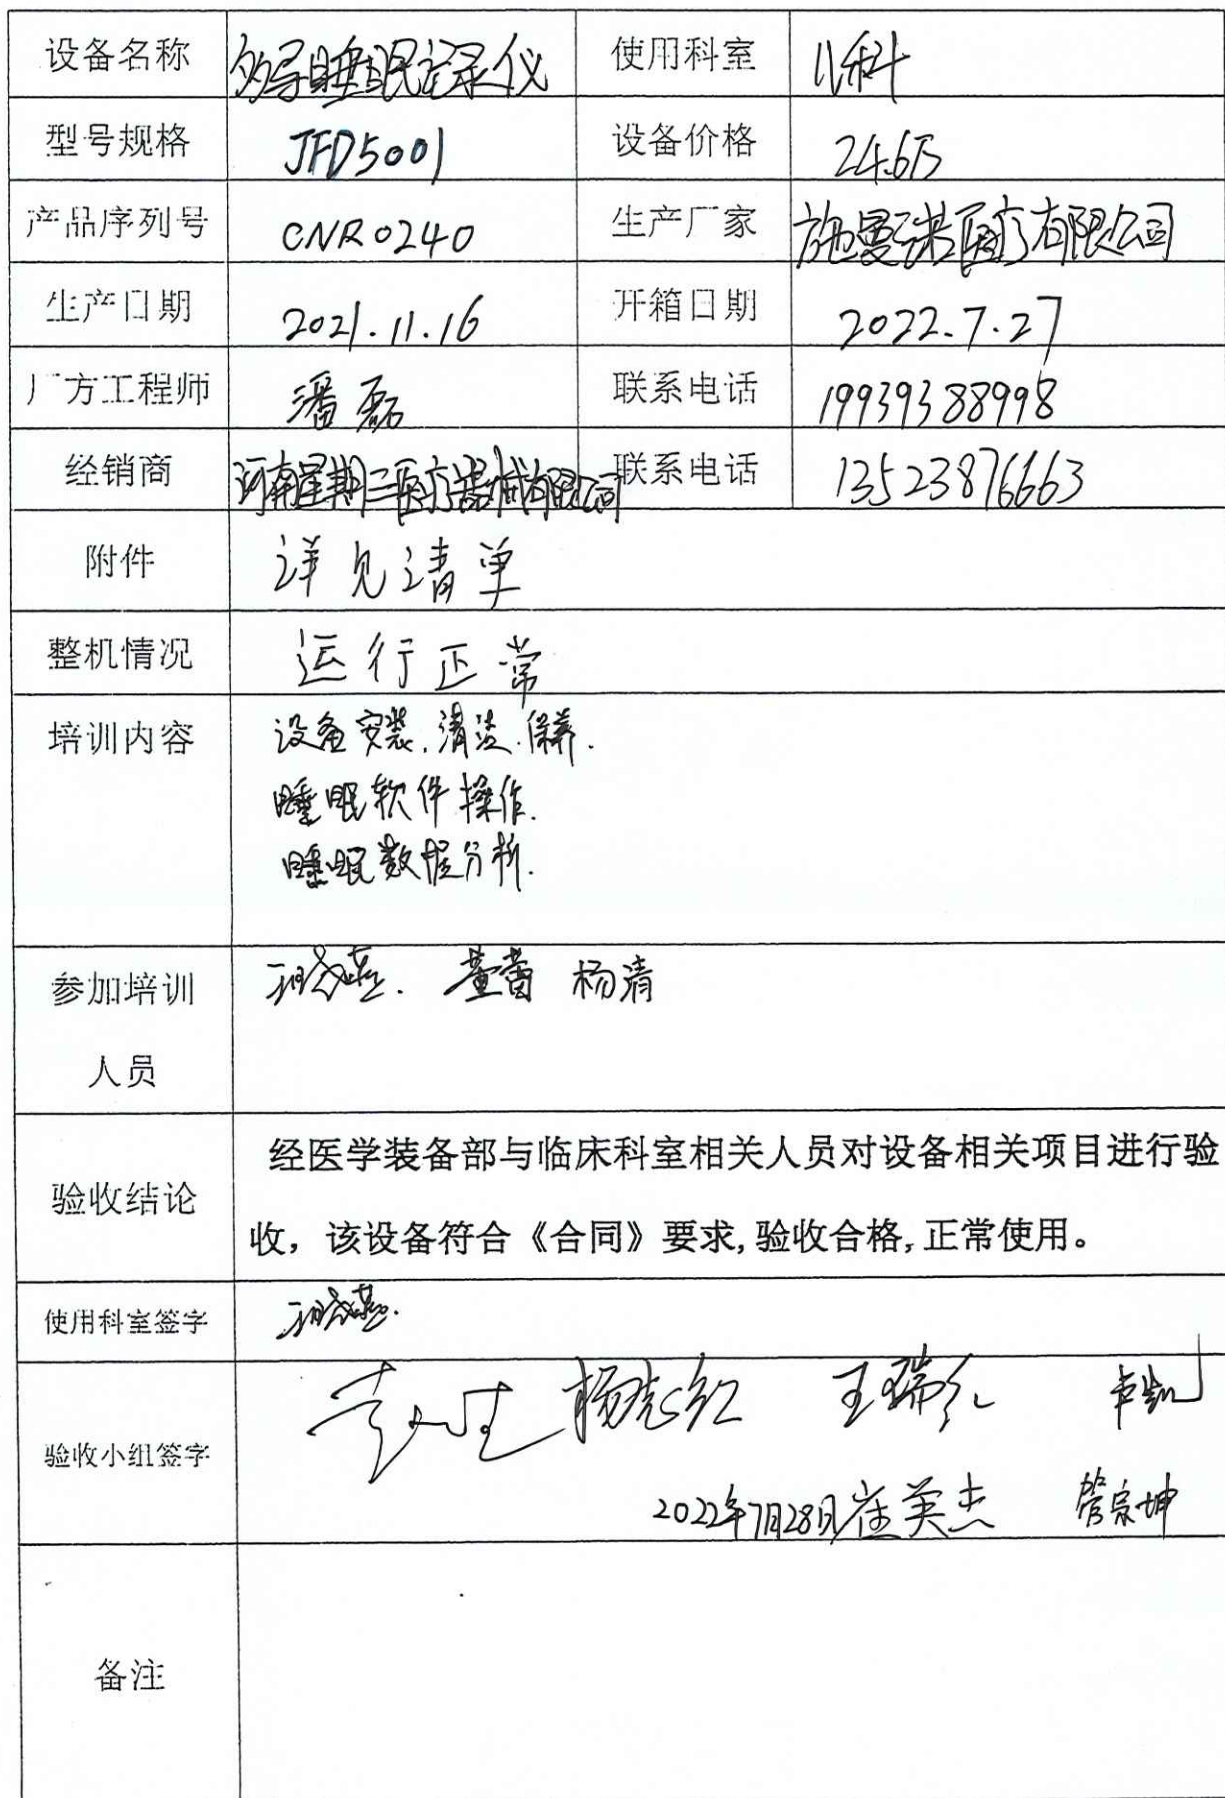 设备名称 多导睡眠记录仪 使用科室 儿科
型号规格 JFD5001 设备价格 24.6万
产品序列号 CNR0240 生产厂家 施曼诺医疗有限公司
生产日期 2021.11.16 开箱日期 2022.7.27
厂方工程师 潘磊 联系电话 19939388998
经销商 河南星期三医疗器械有限公司 联系电话 13523876663
附件 详见清单
整机情况 运行正常
培训内容 设备安装.清洁.保养.
睡眠软件操作.
睡眠数据分析.
参加培训 董蕾 杨清
人员
经医学装备部与临床科室相关人员对设备相关项目进行验
验收结论
收，该设备符合《合同》要求,验收合格,正常使用。
使用科室签字
杨志红 王瑞红 卢凯
验收小组签字
2022年7月28日 崔英杰 管宗坤
备注